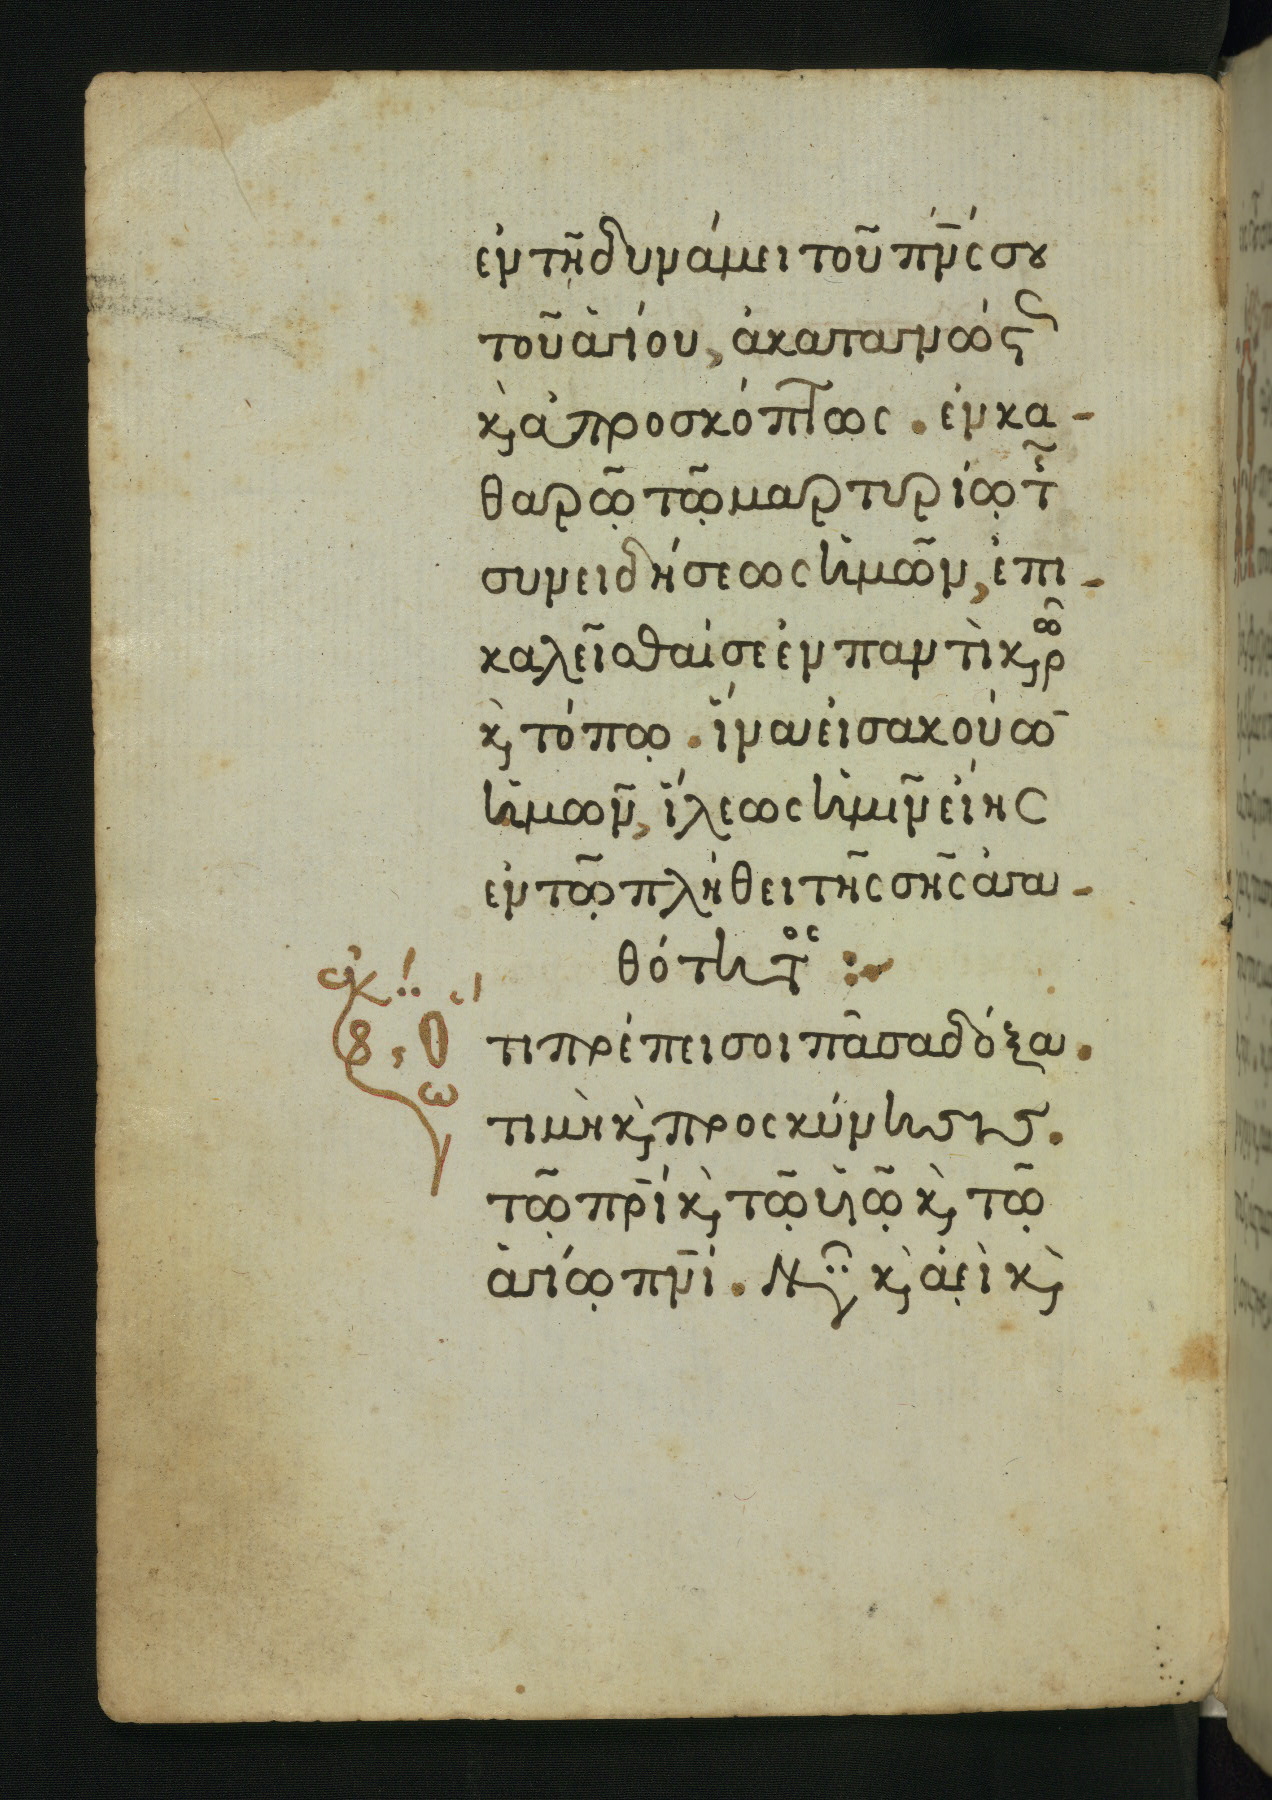 ἐν τῆ δυνάμει τοῦ πν̅ς σου
τοῦ ἁγίου, ἀκαταγνώς
κ̀ ἀπροσκόπτως . ἐν κα -
θαρῶ̣ τῶ̣ μαρτυρίω̣ τ̃
συνειδήσεως ἡμῶν, ἐπι -
καλεῖσθαί σε ἐν παντὶ κρ̑ω
κ̀ τόπω̣ . ἵνα εἰσακούω̅
ἡμῶν, ἵλεως ἡμῖν εἴης
ἐν τῶ̣ πλήθει τῆς σῆς ἀγα -
θότητος :-
ἐκ
8 , Ὅ
ω
τι πρέπει σοι πᾶσα δόξα .
τιμὴ κ̀ προσκύνησις .
τῶ̣ πρ̅ι κ̀ τῶ̣ υἱῶ̣ κ̀ τῶ̣
ἁγίω̣ πν̅ι . Νῦν κ̀ ἀεὶ κ̀